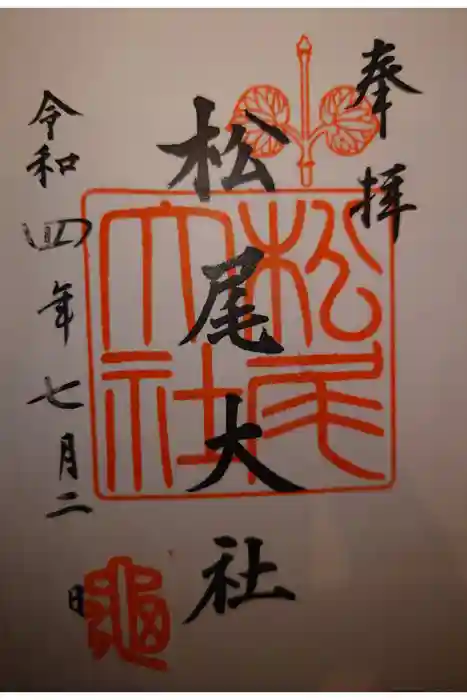 奉拝
松尾大社
松尾大社
令和四年七月二日
亀